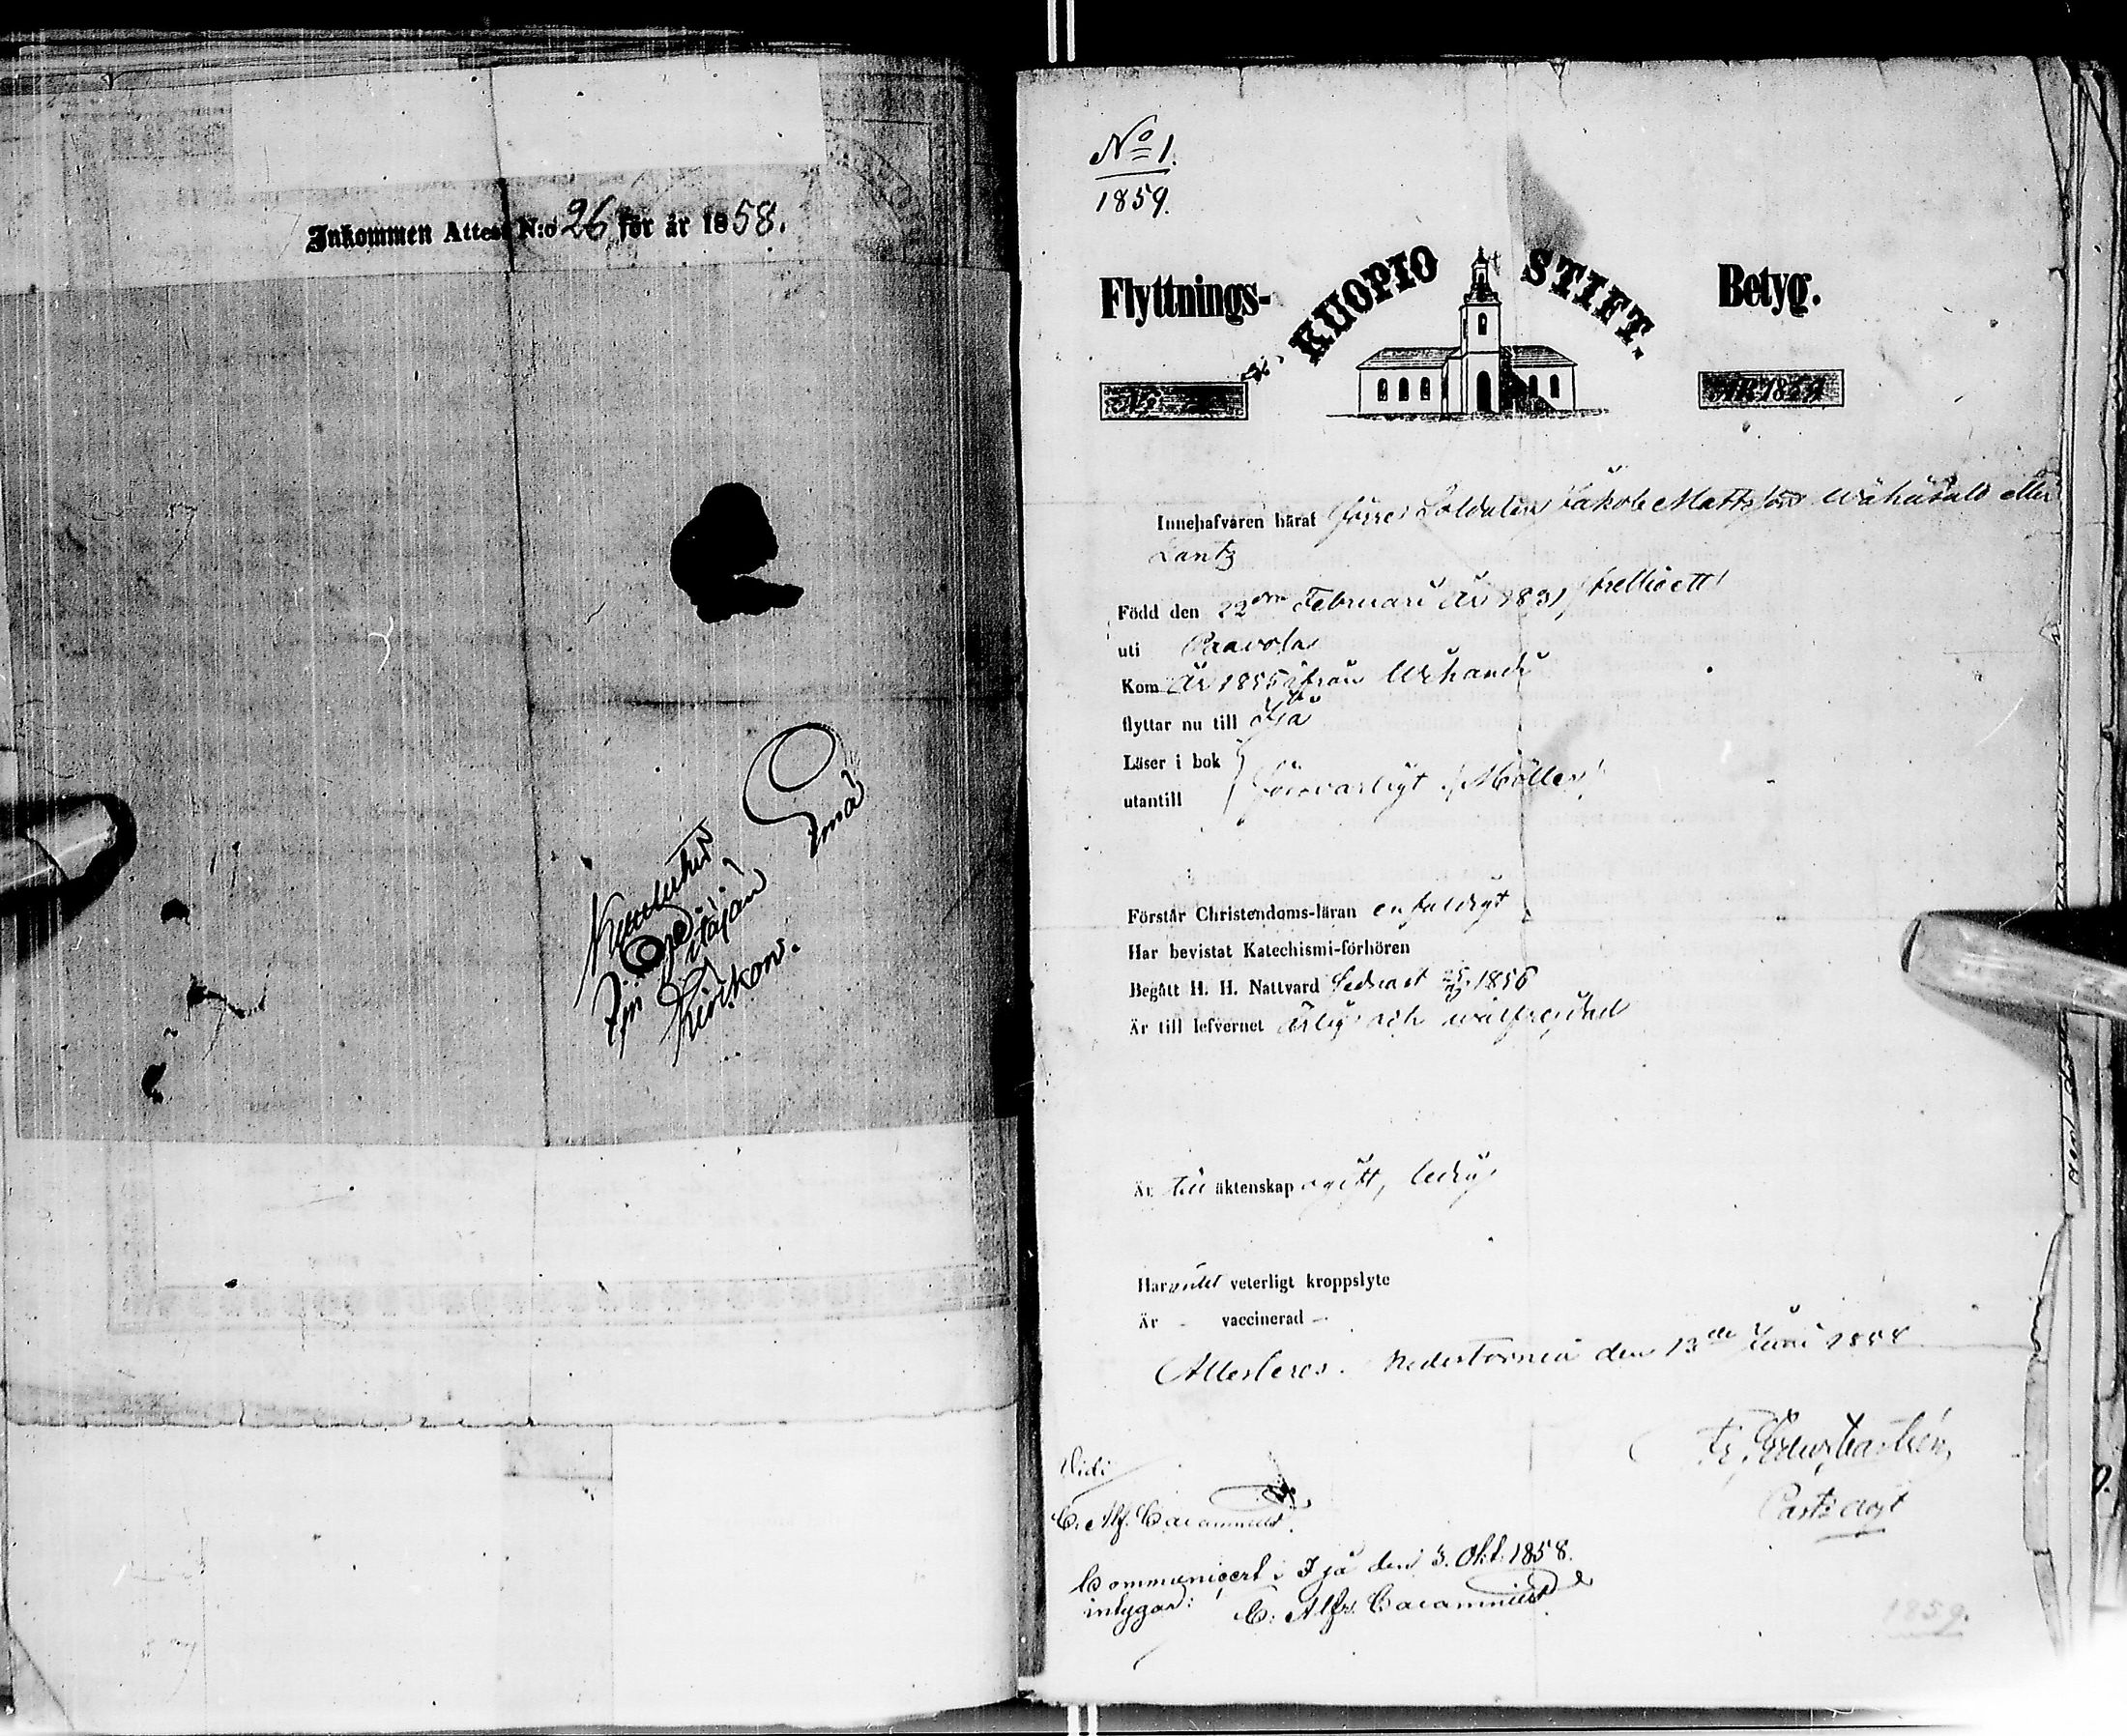 Inkommen Attest N:o 26 för år 1858.
Ijn Pitäjän
Kirkon.
No 1.
1859.
Flyttnings- KUOPIO STIFT. Betyg.
Innehafvaren häraf förre Soldaten Jakob Mattsson Wähäsalo eller
Lantz
Född den 22dra Februari år 1831 /trettioett/
uti Paavola
Kom år 1855 ifrån Urhandi
flyttar nu till Ijå
Läser i bok
utantill försvarligt
Förstår Christendoms-läran enfaldigt
Har bevistat Katechismi-förhören
Begått H. H. Nattvard sednast 1856
Är till lefvernet ärlig och wälfrejdad
Är till äktenskap ogift, ledig
Har intet veterligt kroppslyte
Är - vaccinerad -
Attesteras. Nedertorneå den 13de Juni 1858
Past: adjt
Vidi
C. Alf.
Communicert i Ijå den 3. Okt. 1858.
intygar: C. Alfr.
1859.